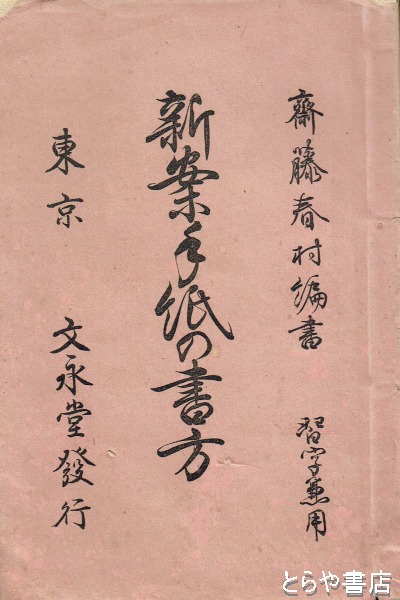 齋藤春村編書
習字兼用
新案手紙の書方
東京 文永堂發行
とらや書店